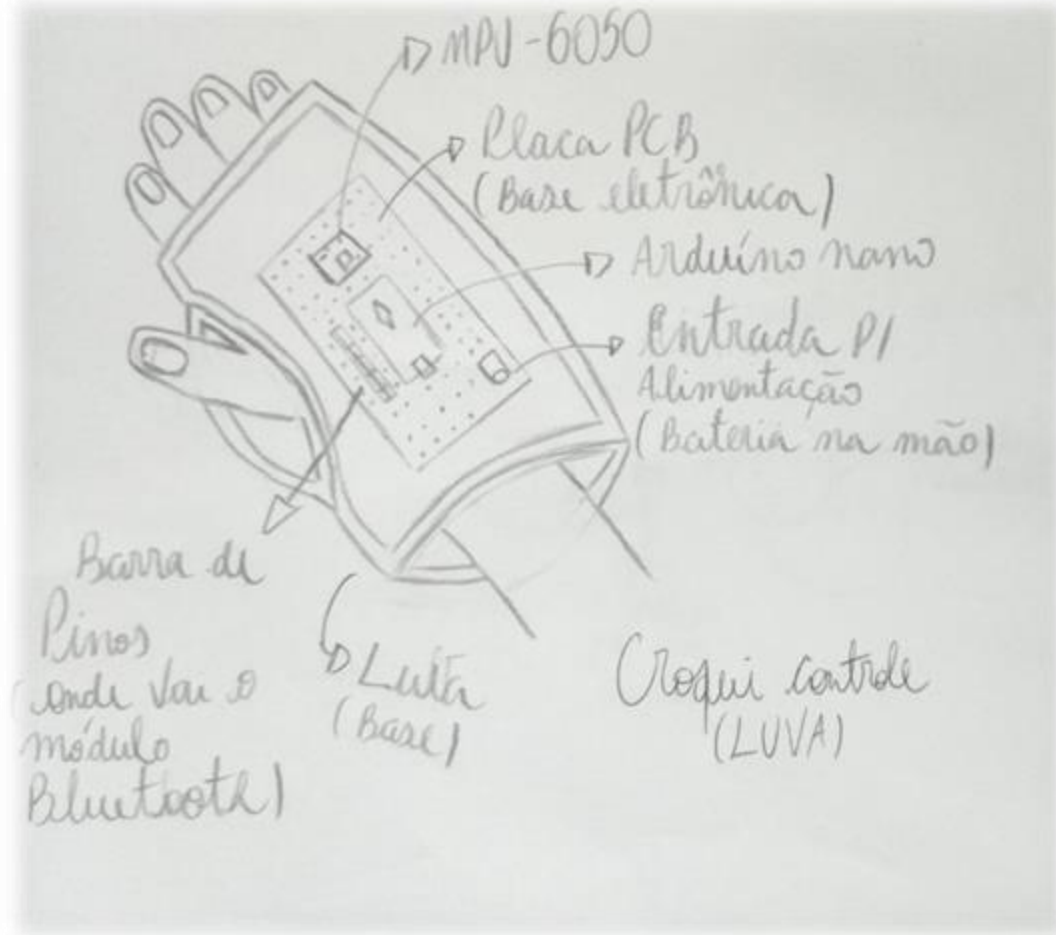 MPU-6050
Placa PCB
(Base eletrônica)
Arduíno nano
Entrada P/
Alimentação
(Bateria na mão)
Barra de
Pinos
(onde vai o
módulo
Bluetooth)
(Base)
Croqui controle
(LUVA)